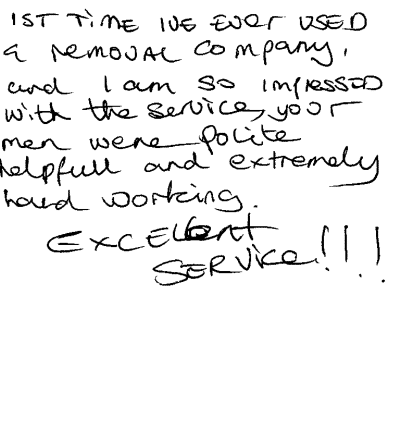 1ST TIME IVE EVER USED
a REMOVAL COMPANY,
and I am so IMPRESSED
with the service, your
men were polite
helpfull and extremely
hard working.
EXCELLENT
SERVICE!!!